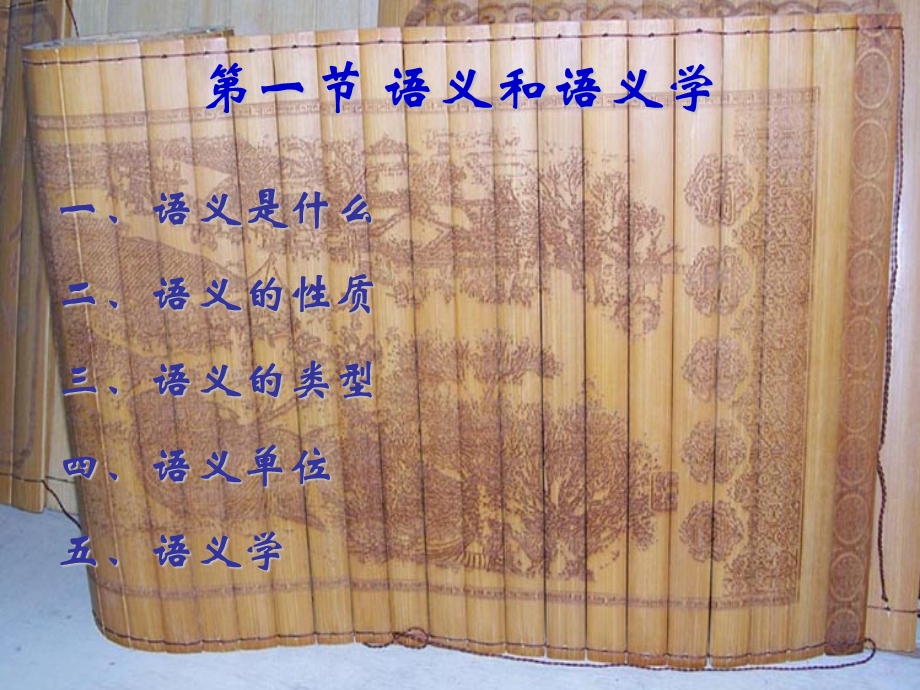 第一节 语义和语义学
一、语义是什么
二、语义的性质
三、语义的类型
四、语义单位
五、语义学